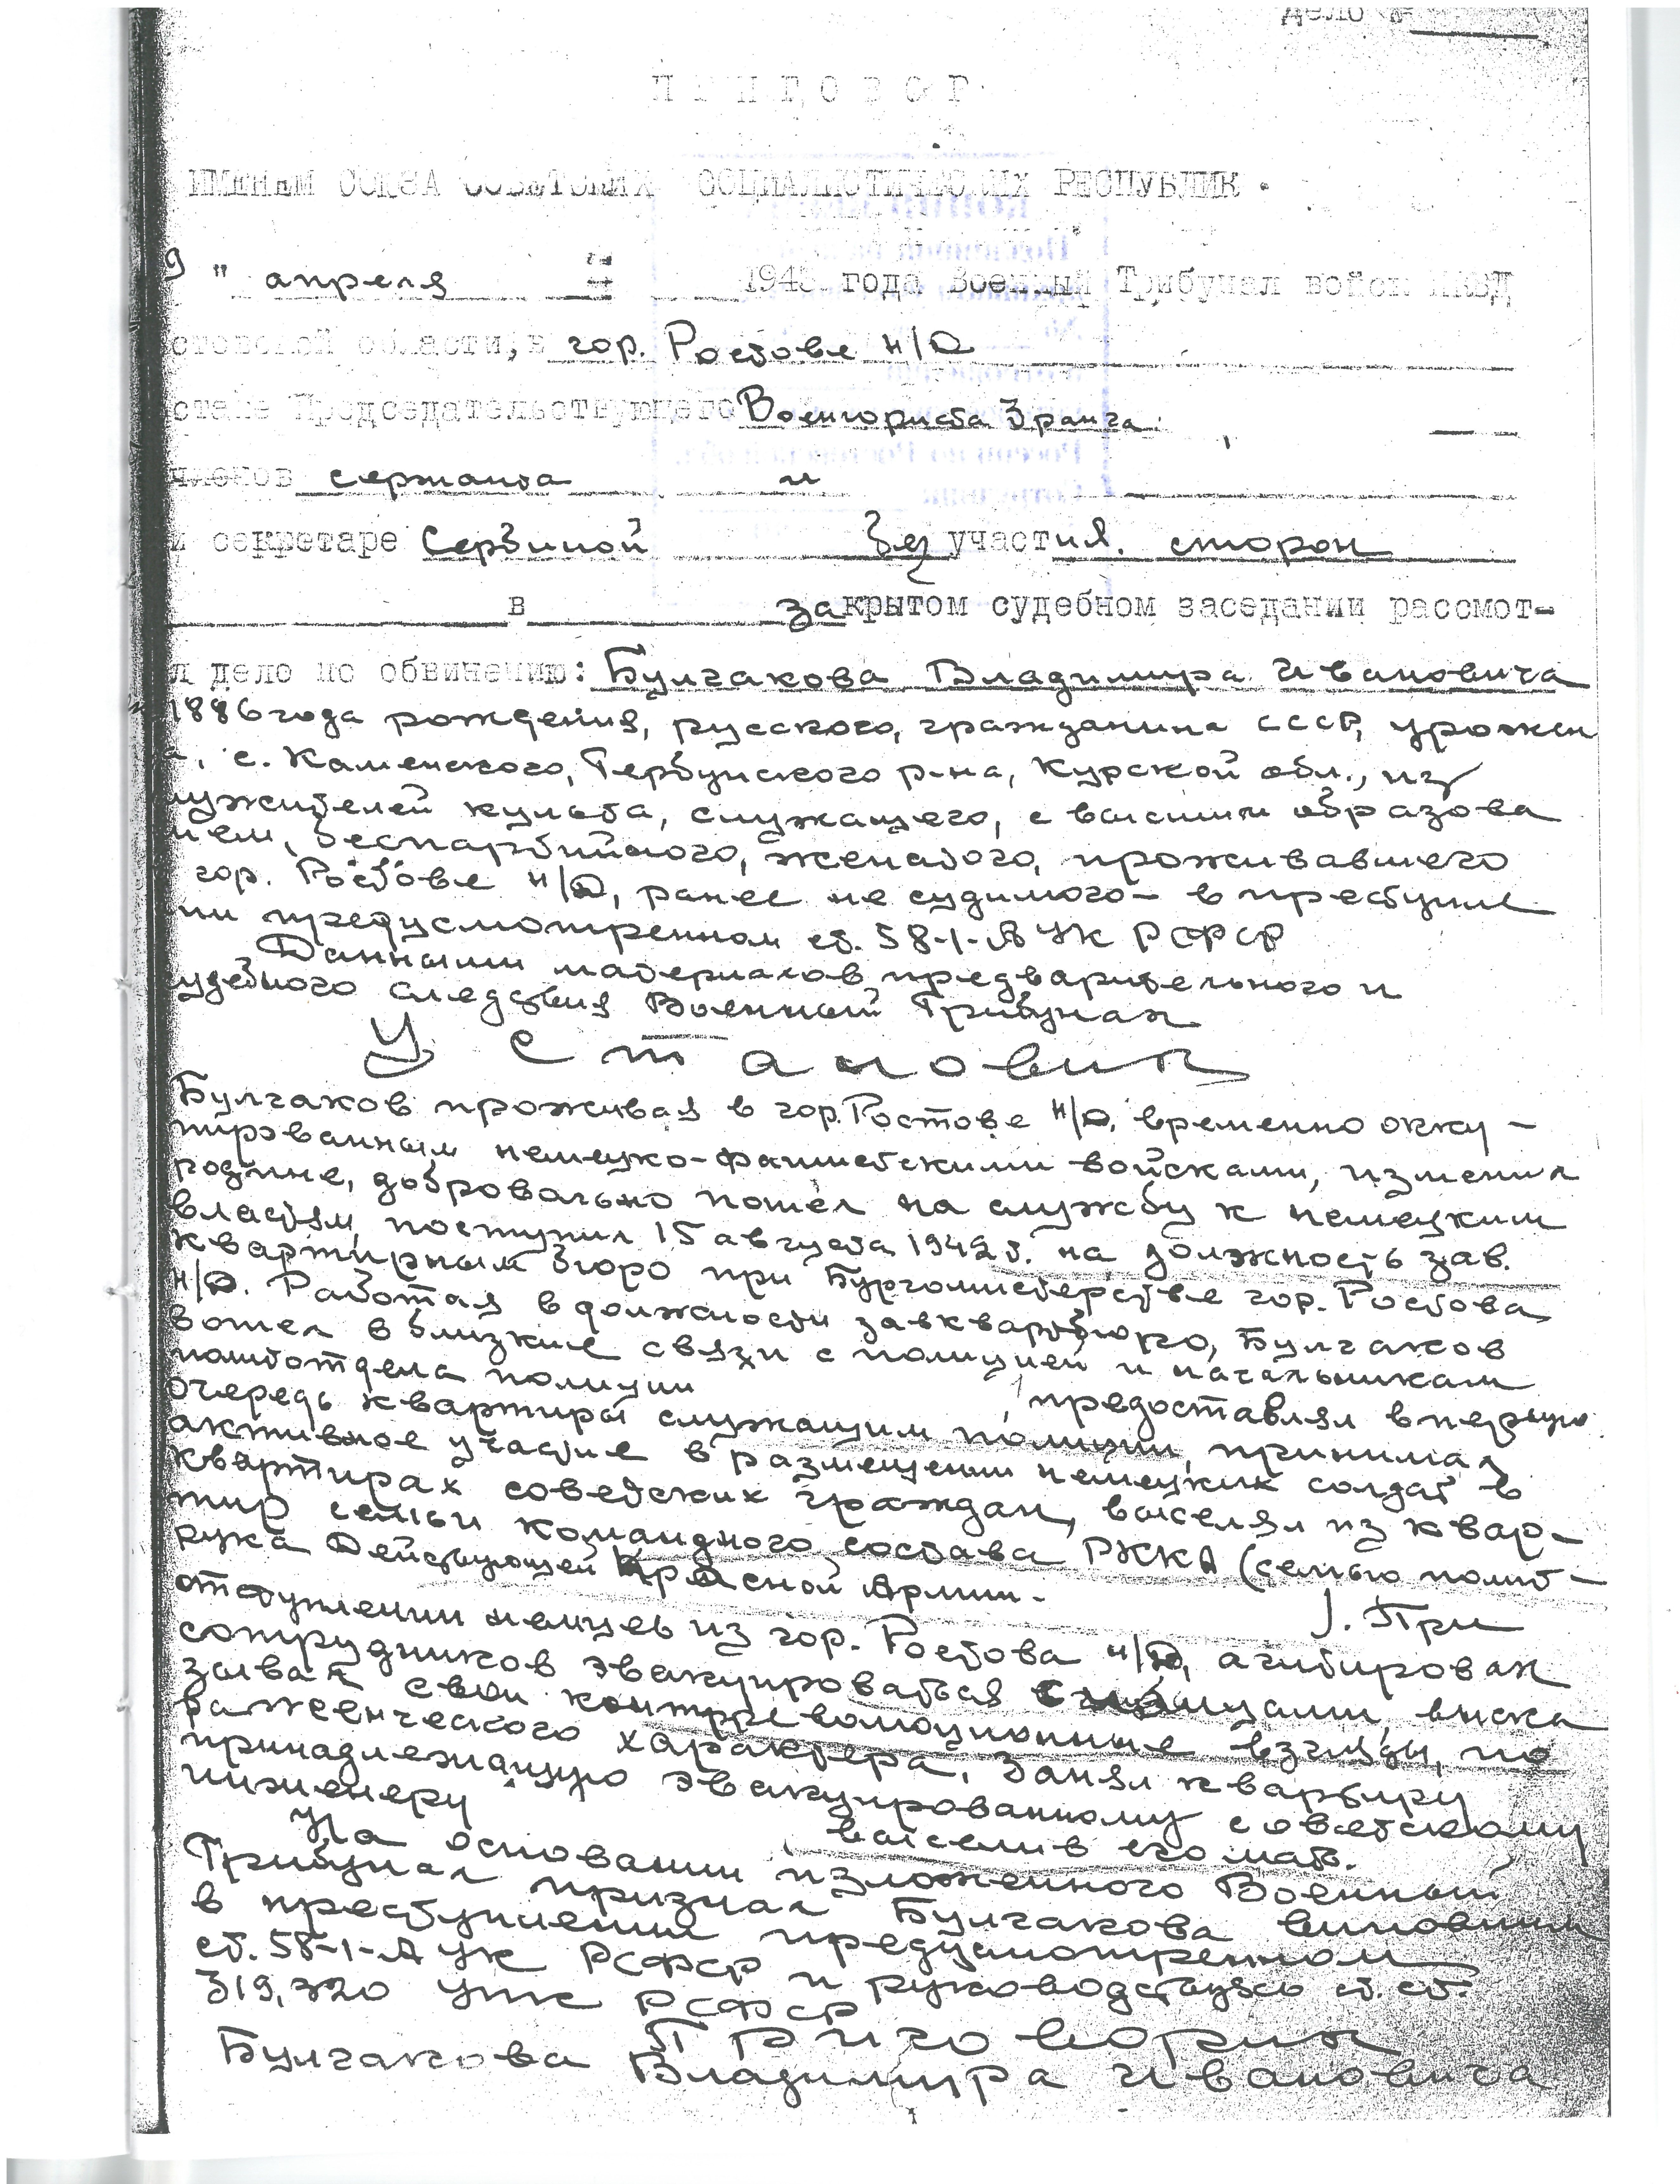 Дело №
ПРИГОВОР
ИМЕНЕМ СОЮЗА СОВЕТСКИХ СОЦИАЛИСТИЧЕСКИХ РЕСПУБЛИК.
9 " апреля 1943 года Военный Трибунал войск НКВД
стовской области, в гор. Ростове н/Д
ставе Председательствующего Военюриста 3 ранга
членов сержанта и
и секретаре Сербиной без участия сторон
в закрытом судебном заседании рассмот-
л дело по обвинению: Булгакова Владимира Ивановича
1886 года рождения, русского, гражданина СССР, урожен
а, с. Каменского, Тербунского р-на, Курской обл., из
лужителей культа, служащего, с высшим образова
нием, беспартийного, женатого, проживавшего
гор. Ростове н/Д, ранее не судимого – в преступле
нии предусмотренном ст. 58-1-А УК РСФСР
Данными материалов предварительного и
удебного следствия Военный Трибунал
Установил
Булгаков проживая в гор. Ростове н/Д, временно окку-
пированным немецко-фашистскими войсками, изменил
родине, добровально пошел на службу к немецким
властям, поступил 15 августа 1942 г. на должность зав.
квартирным бюро при Бургомистерстве гор. Ростова
н/Д. Работая в должности завквартбюро, Булгаков
вошел в близкие связи с полицией и начальникам
политотдела полиции предоставлял в первую
очередь квартиры служащим полиции, принимал
активное участие в размещении немецких солдат в
квартирах советских граждан, выселял из квар-
тир семьи командного состава РККА (семью полит-
рука Действующей Красной Армии.
). При
отступлении немцев из гор. Ростова н/Д, агитировал
сотрудников эвакуироваться с немцами, выска
зывал свои контрреволюционные взгляды, по
раженческого характера. Занял квартиру
принадлежащую эвакуированному советскому
инженеру выселив его мать.
На основании изложенного Военный
Трибунал признал Булгакова виновным
в преступлении предусмотренном
ст. 58-1-А УК РСФСР и руководствуясь ст. ст.
319, 320 УПК РСФСР
Приговорил
Булгакова Владимира Ивановича